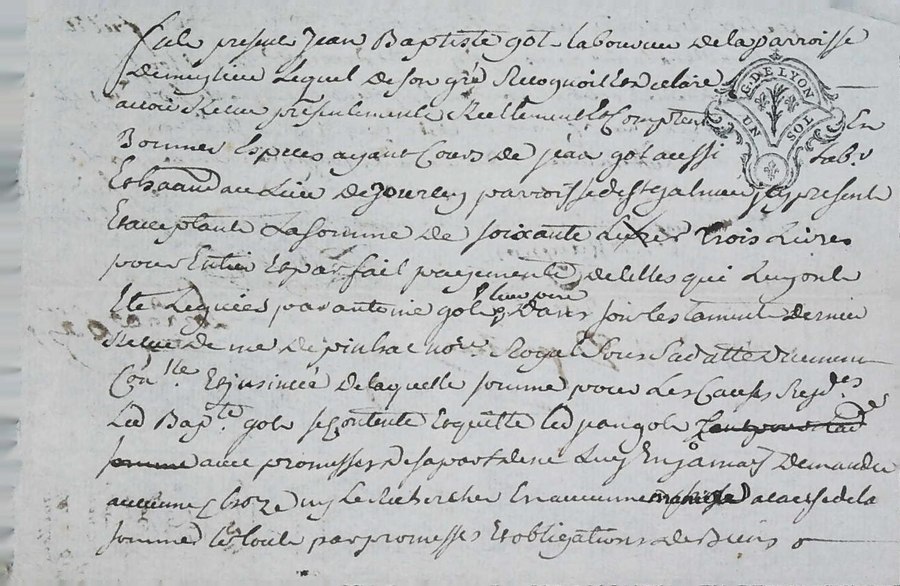 fut present Jean Baptiste got laboureur de la parroisse
lequel de son gré Recognoit Et declare
avoir Reçeu presentement Reellement Et Comptent
G. DE LYON
UN SOL
En
Bonnes Especes ayant Cours de jean got aussi hab.t
Et au Lieu de parroisse de St galmier jcy present
Et acceptant La somme de soixante trois Livres
pour Entier Et parfait payement de celles qui Luy ont
Eté Leguées par antoine got Leur pere Dans son testament dernier
Reçeu de me not.re Royal Sous Sa datte duement
Con.llé Et jnsinüé de laquelle somme pour Les Causes Resp.des
Led Bap.te got se Contente Et quitte led jean got
avec promesses de sa part de ne Luy En jamais Demander
aucune Choze ny Le Rechercher En aucune maniere a cause de la
somme Le tout par promesses Et obligations de Biens